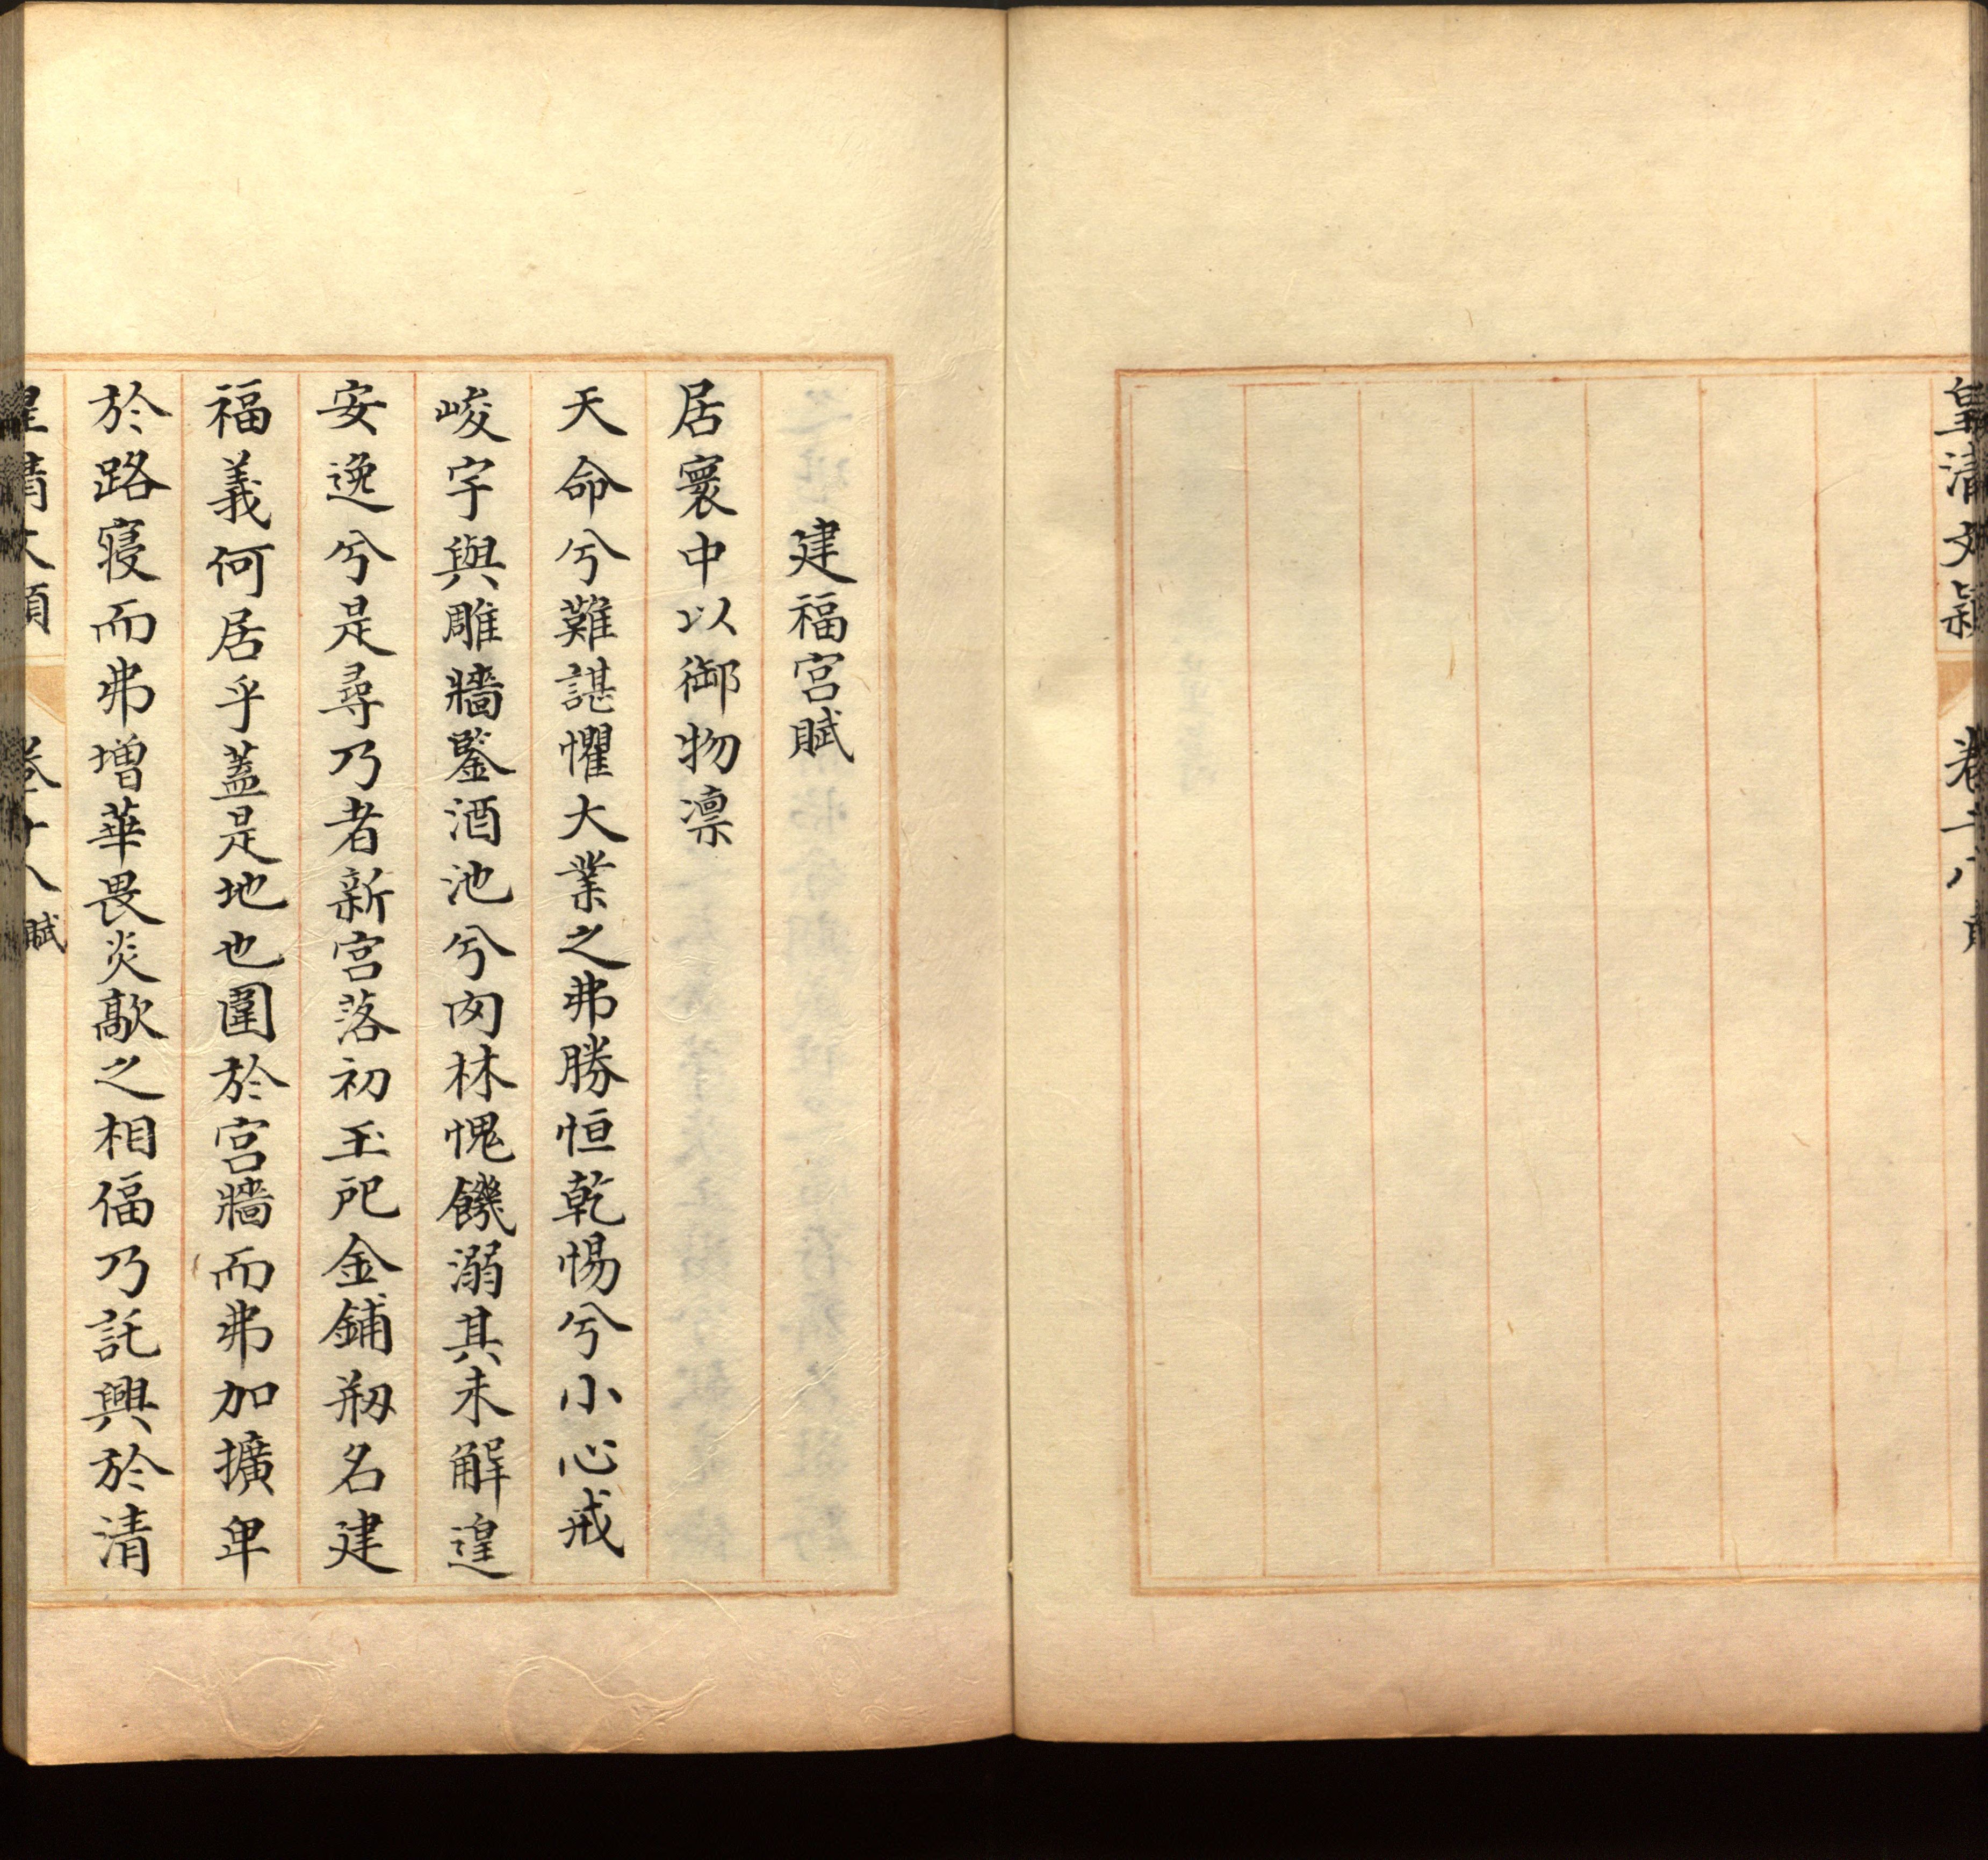 皇清文穎
卷十八
建福宮賦
居寰中以御物凛
天命兮難諶懼大業之弗勝恒乾惕兮小心戒
峻宇與雕牆鑒酒池兮肉林愧饑溺其未解遑
安逸兮是尋乃者新宮落初玉戺金鋪剏名建
福義何居乎蓋是地也圍於宮牆而弗加擴卑
於路寢而弗增華畏炎歊之相偪乃託興於清
皇清文穎
卷十八
賦